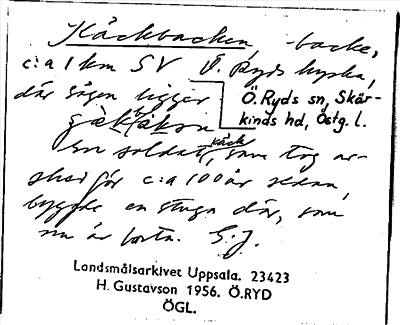 Käckbacken, -backe,
c:a 1 km SV Ö. Ryds kyrka,
där vägen ligger
Ö. Ryds sn, Skär-
kinds hd, Östg. l.
En soldat, Käck, som tog av-
sked för c:a 100 år sedan,
byggde en stuga där, som
nu är borta. G.J.
Landsmålsarkivet Uppsala. 23423
H. Gustavson 1956. Ö.RYD
ÖGL.